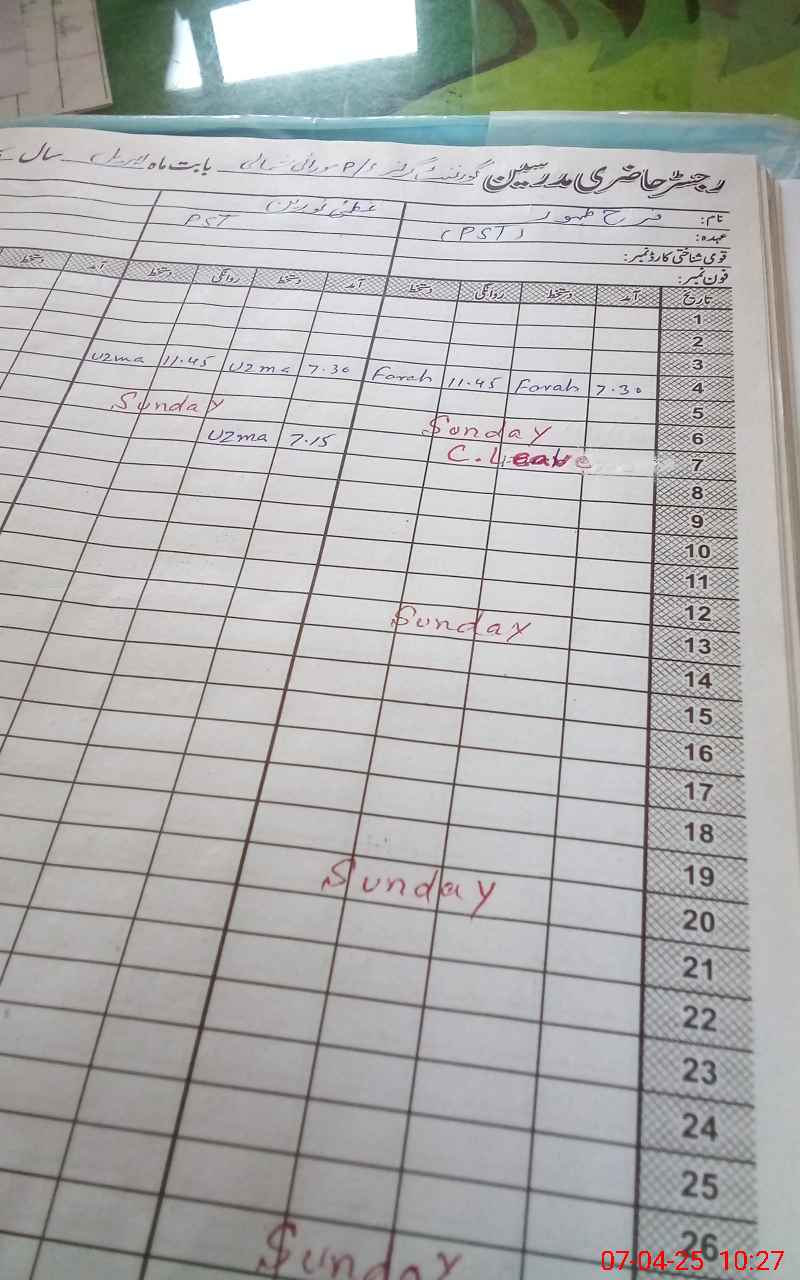 رجسٹر حاضری مدرسین گورنمنٹ گرلز P/S سورانی شمالی بابت ماہ اپریل سال
نام: فرح ظہور عظمیٰ نورین
عہدہ: (PST) PST
قومی شناختی کارڈ نمبر:
فون نمبر:
تاریخ آمد دستخط روانگی دستخط آمد دستخط روانگی دستخط آمد دستخط
1
2
3
4 7.30 Farah 11.45 Farah 7.30 Uzma 11.45 Uzma
5
6 Sunday Sunday
7 C. Leave 7.15 Uzma
8
9
10
11
12
13 Sunday
14
15
16
17
18
19
20 Sunday
21
22
23
24
25
26
Sunday
07-04-25 10:27